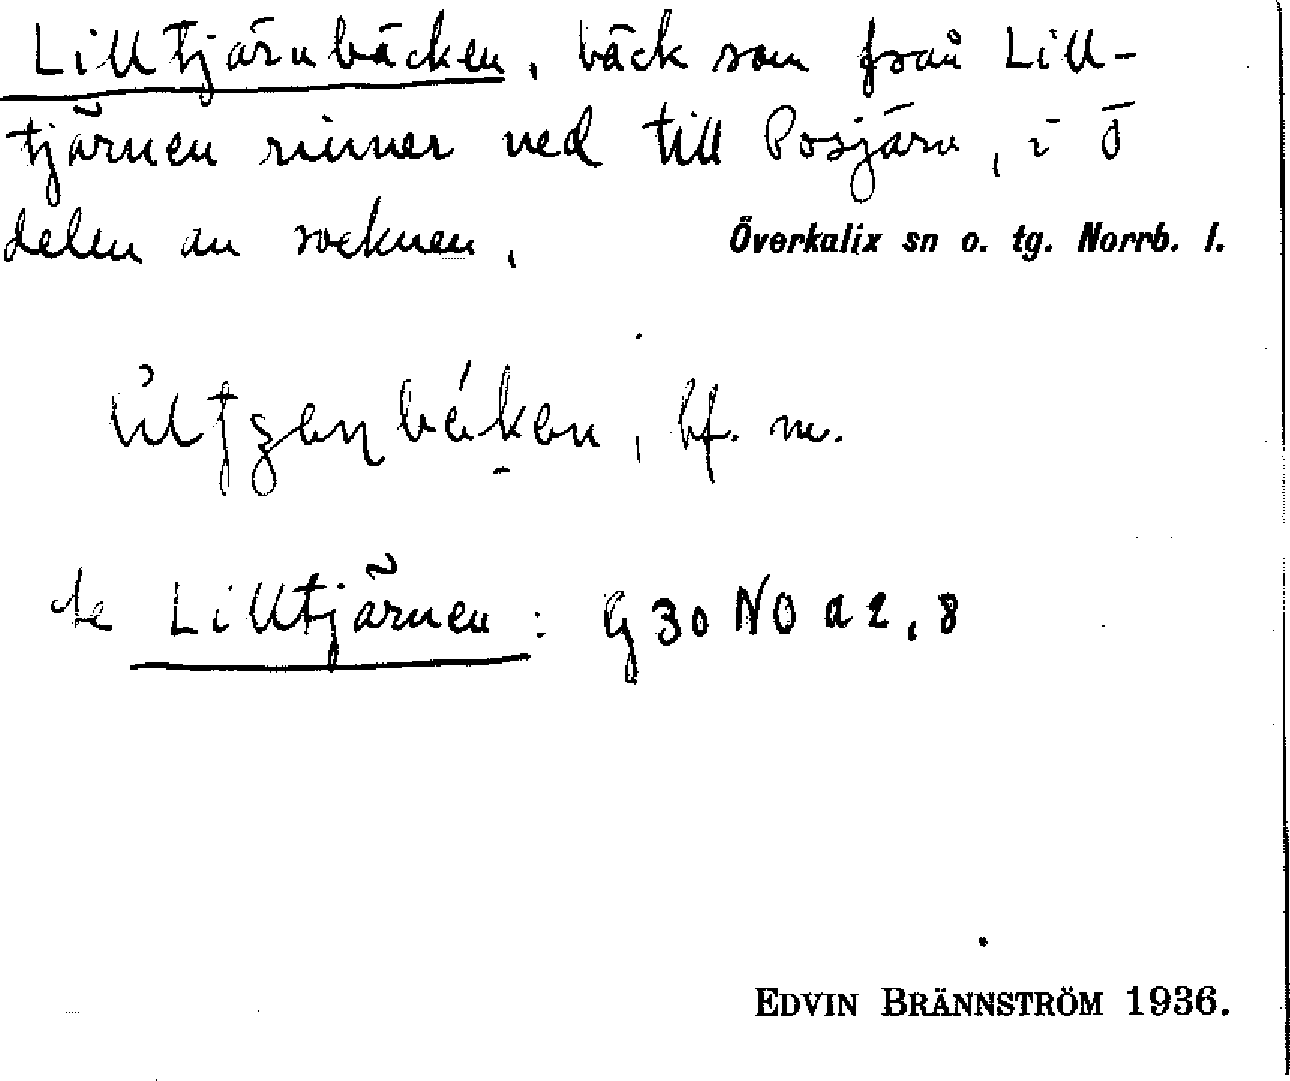 Lilltjärnbäcken, bäck som från Lill-
tjärnen rinner ned till Posjärv, i Ö
delen av socknen.
Överkalix sn o. tg. Norrb. l.
bf. m.
se Lilltjärnen: G 30 NO a 2, 8
EDVIN BRÄNNSTRÖM 1936.